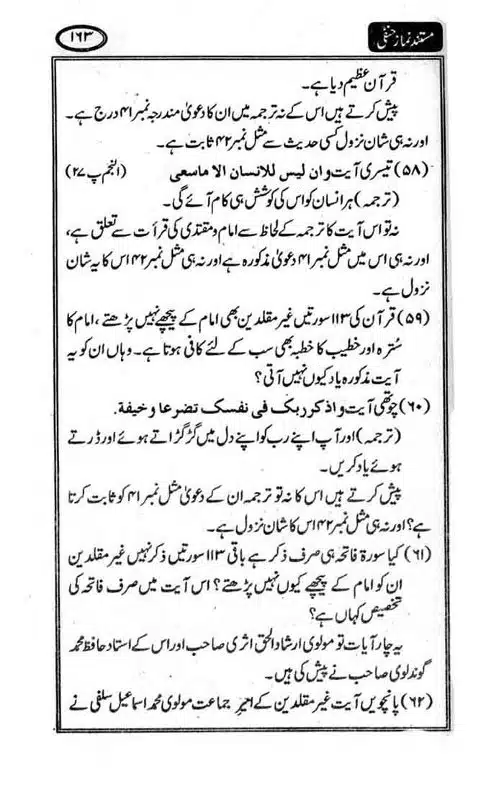 مستند نماز حنفی
۱۶۳
قرآن عظیم دیا ہے۔
پیش کرتے ہیں اس کے نہ ترجمہ میں ان کا دعویٰ مندرجہ نمبر ۴۱ درج ہے۔
اور نہ ہی شان نزول کسی حدیث سے مثل نمبر ۴۲ ثابت ہے۔
(۵۸) تیسری آیت و ان لیس للانسان الا ماسعی (النجم پ ۲۷)
(ترجمہ) ہر انسان کو اس کی کوشش ہی کام آئے گی۔
نہ تو اس آیت کا ترجمہ کے لحاظ سے امام و مقتدی کی قرأت سے تعلق ہے،
اور نہ ہی اس میں مثل نمبر ۴۱ دعویٰ مذکورہ ہے اور نہ ہی مثل نمبر ۴۲ اس کا یہ شان
نزول ہے۔
(۵۹) قرآن کی ۱۱۳ سورتیں غیر مقلدین بھی امام کے پیچھے نہیں پڑھتے، امام کا
سُترہ اور خطیب کا خطبہ بھی سب کے لئے کافی ہوتا ہے۔ وہاں ان کو یہ
آیت مذکورہ یاد کیوں نہیں آتی؟
(۶۰) چوتھی آیت و اذکر ربک فی نفسک تضرعا وخیفة۔
(ترجمہ) اور آپ اپنے رب کو اپنے دل میں گڑگڑاتے ہوئے اور ڈرتے
ہوئے یاد کریں۔
پیش کرتے ہیں اس کا نہ تو ترجمہ ان کے دعویٰ مثل نمبر ۴۱ کو ثابت کرتا
ہے؟ اور نہ ہی مثل نمبر ۴۲ اس کا شان نزول ہے۔
(۶۱) کیا سورۃ فاتحہ ہی صرف ذکر ہے باقی ۱۱۳ سورتیں ذکر نہیں غیر مقلدین
ان کو امام کے پیچھے کیوں نہیں پڑھتے؟ اس آیت میں صرف فاتحہ کی
تخصیص کہاں ہے؟
یہ چار آیات تو مولوی ارشاد الحق اثری صاحب اور اس کے استاد حافظ محمد
گوندلوی صاحب نے پیش کی ہیں۔
(۶۲) پانچویں آیت غیر مقلدین کے امیرِ جماعت مولوی محمد اسماعیل سلفی نے